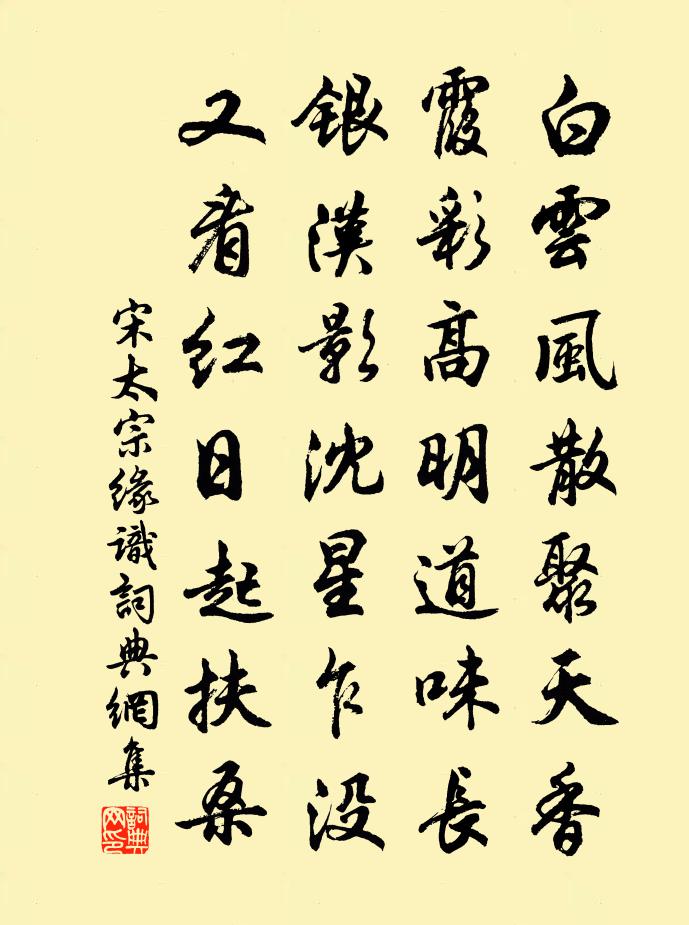 白雲風散聚天香
霞彩高明道味長
銀漢影沈星乍没
又看紅日起扶桑
宋太宗緣識詞典網集
詞典网印